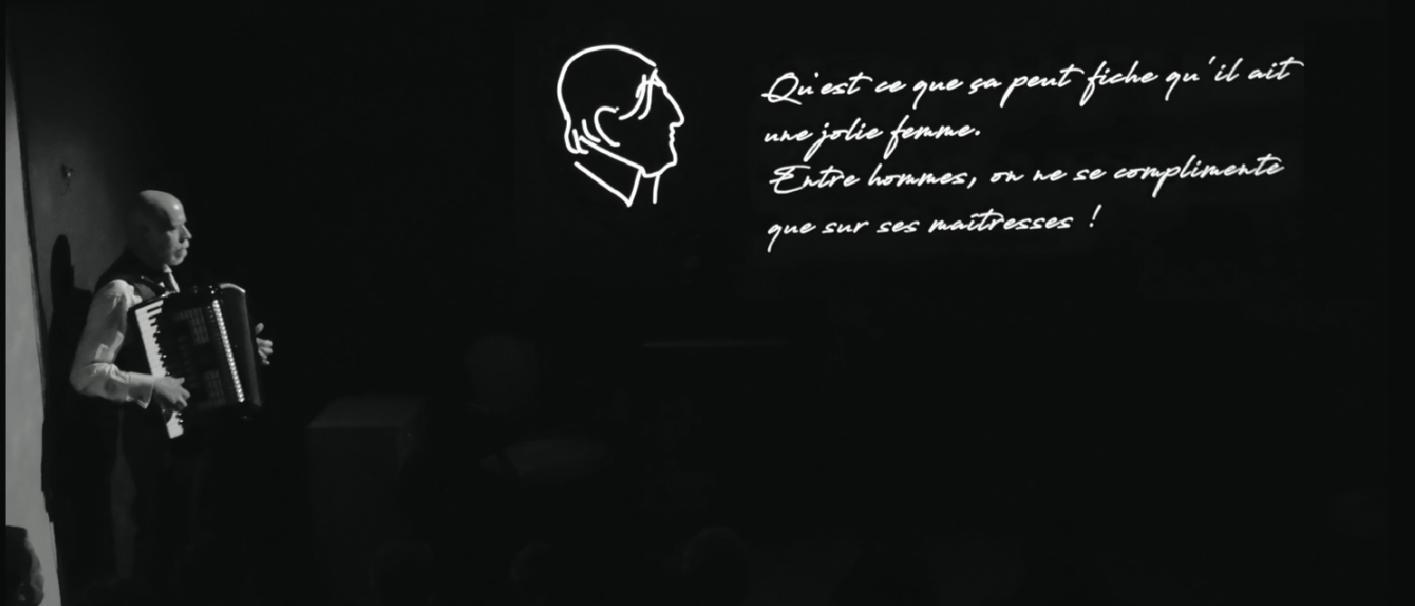 Qu'est ce que ça peut fiche qu'il ait
une jolie femme.
Entre hommes, on ne se complimente
que sur ses maîtresses !